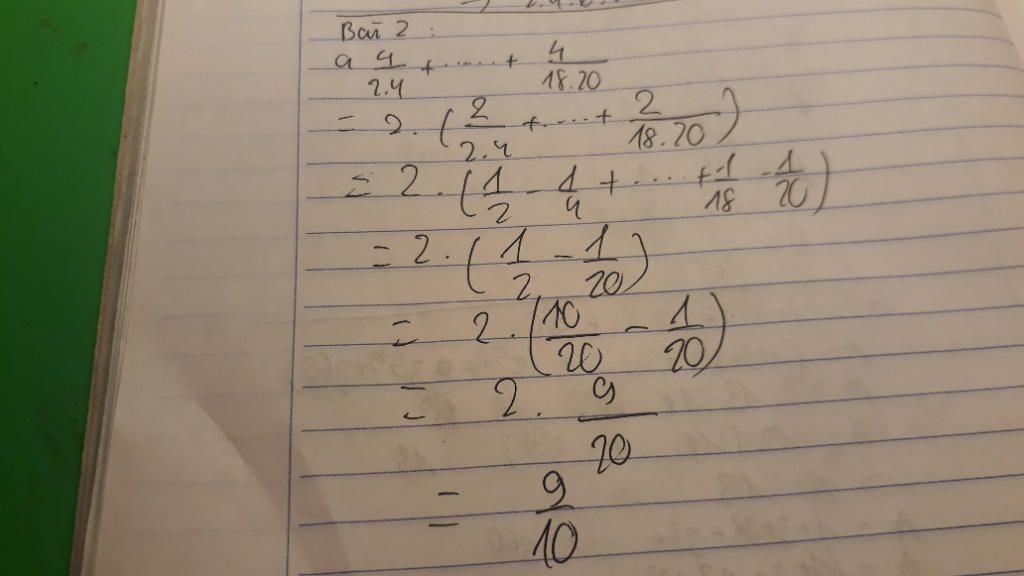 Bài 2 :
a 4/2.4 + ..... + 4/18.20
= 2. (2/2.4 + ... + 2/18.20)
= 2 . (1/2 - 1/4 + ..... + 1/18 - 1/20)
= 2 . (1/2 - 1/20)
= 2 . (10/20 - 1/20)
= 2 . 9/20
= 9/10